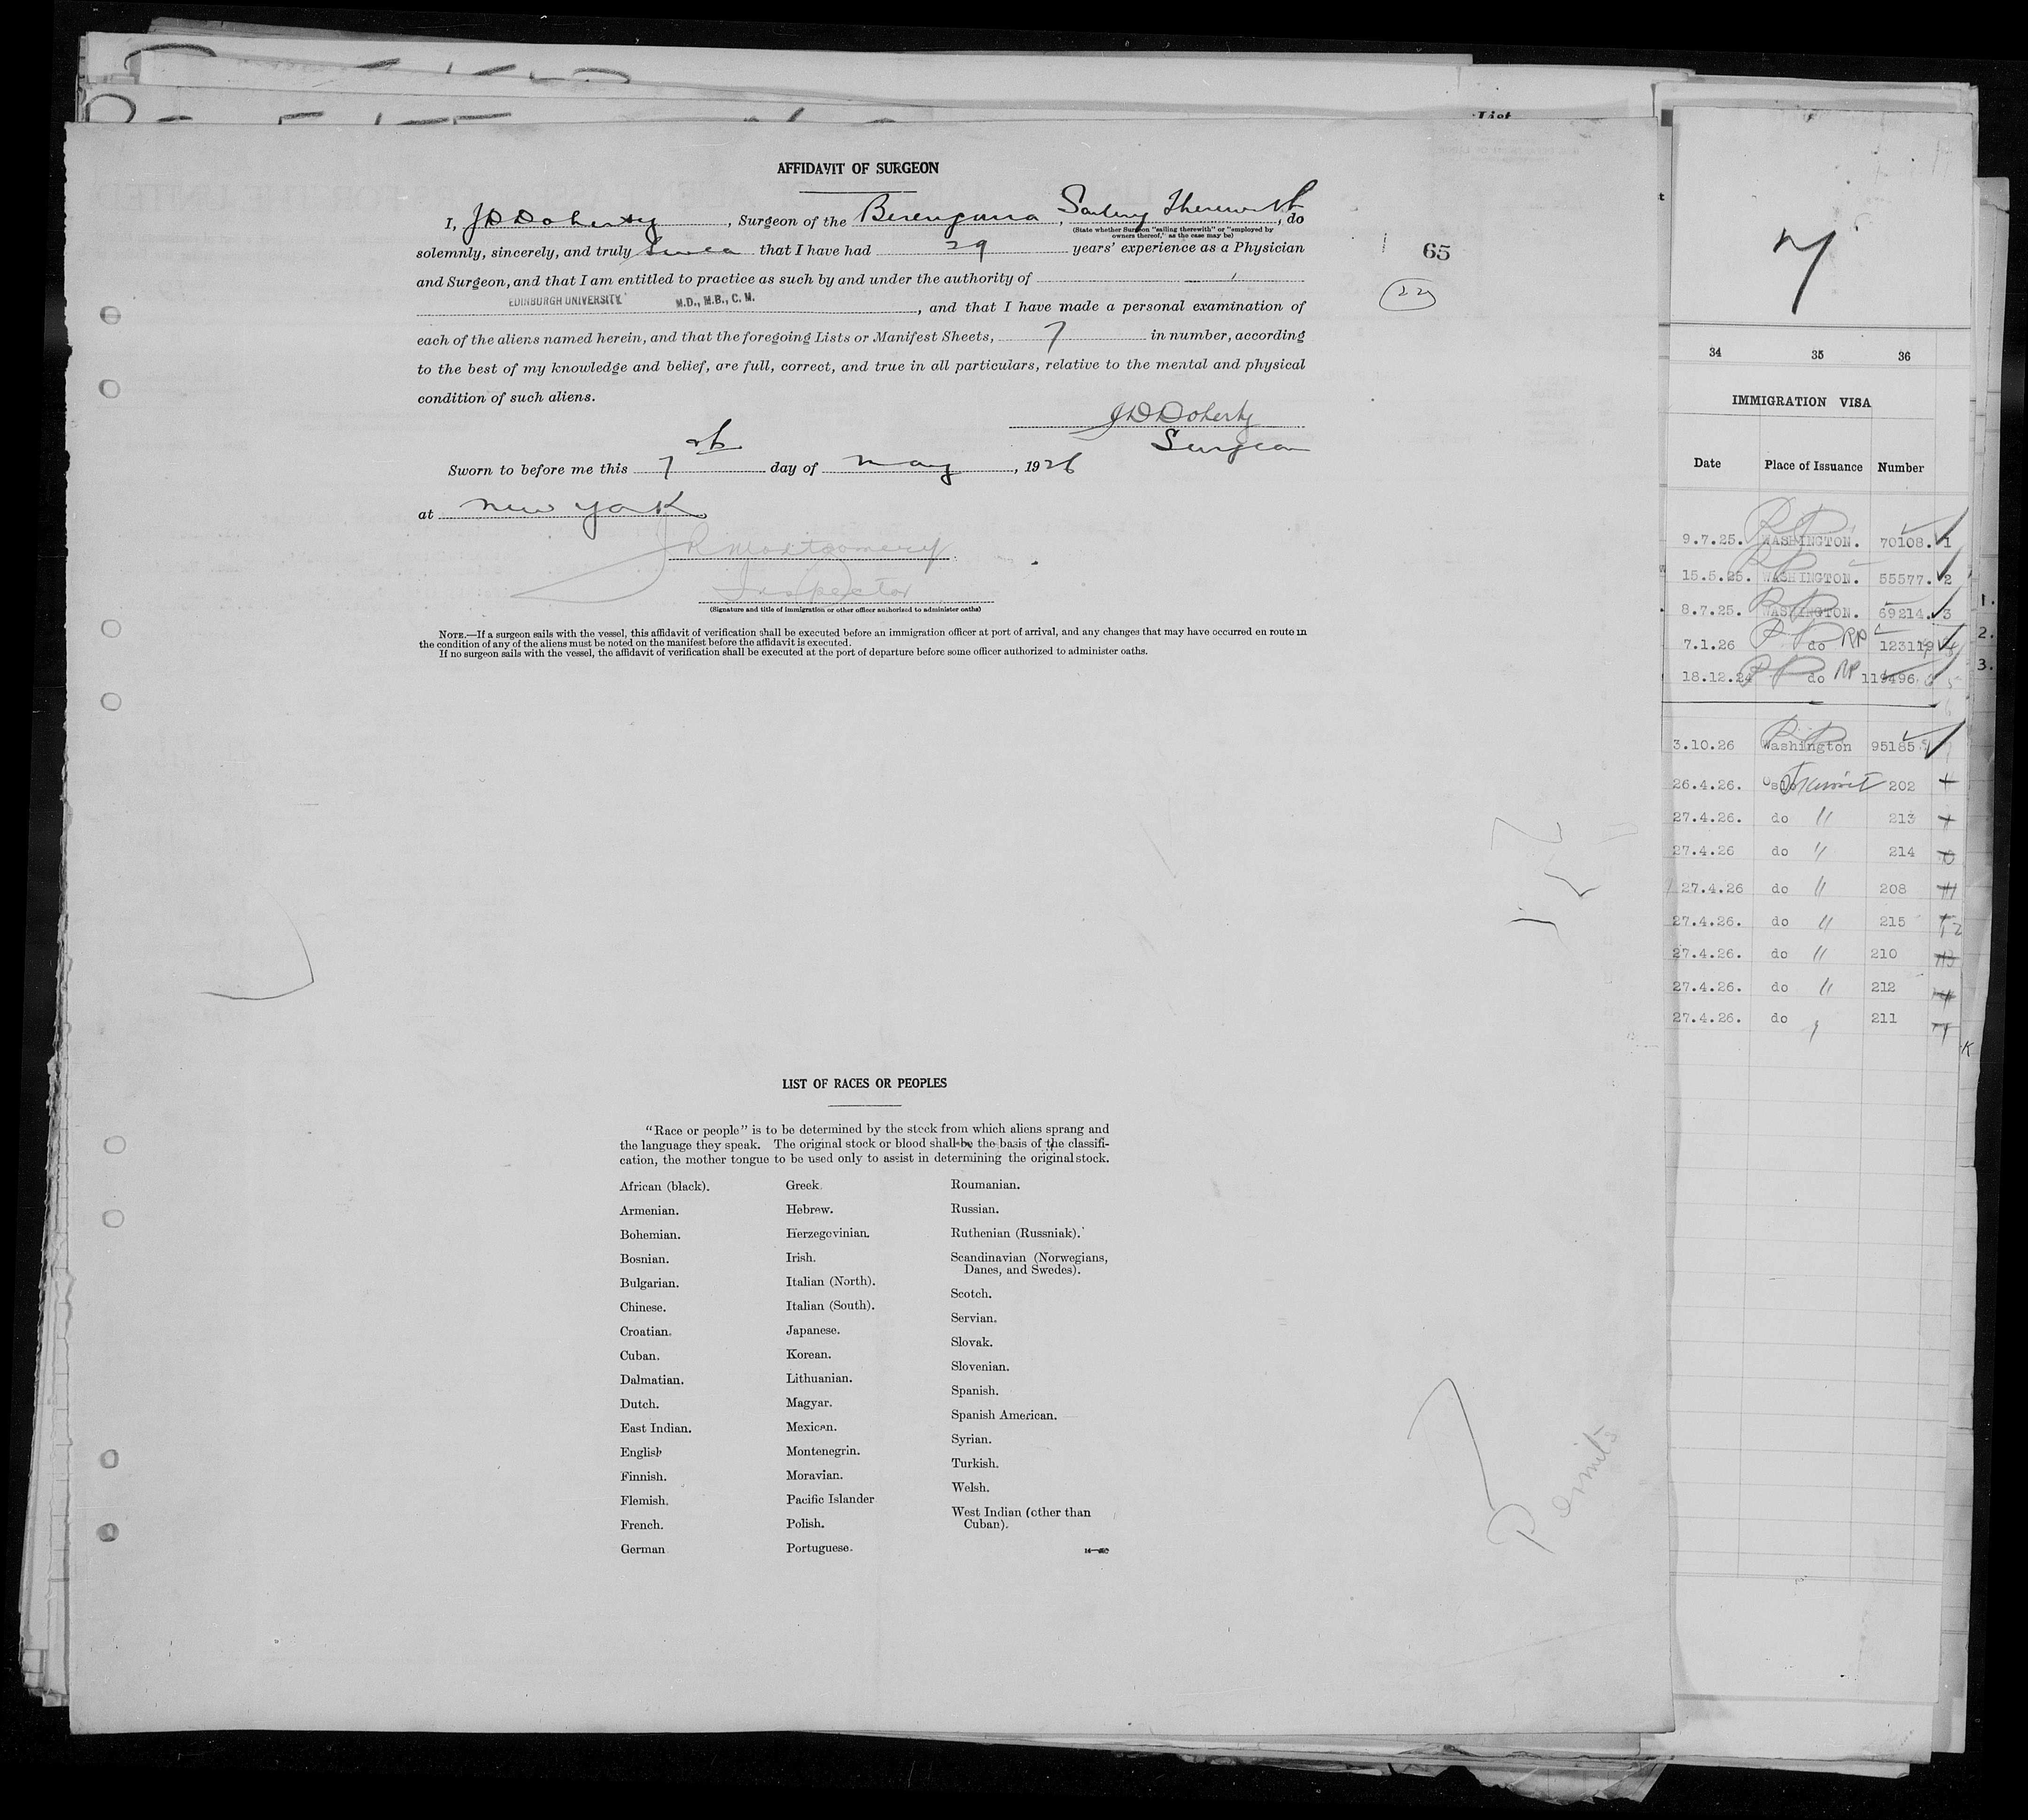 List
AFFIDAVIT OF SURGEON
I, JD Doherty, Surgeon of the Berengaria, Sailing Therewith, do
(State whether Surgeon "sailing therewith" or "employed by
owners thereof," as the case may be)
solemnly, sincerely, and truly Swear that I have had 29 years' experience as a Physician
and Surgeon, and that I am entitled to practice as such by and under the authority of
EDINBURGH UNIVERSITY. M.D., M.B., C. M. , and that I have made a personal examination of
each of the aliens named herein, and that the foregoing Lists or Manifest Sheets, 7 in number, according
to the best of my knowledge and belief, are full, correct, and true in all particulars, relative to the mental and physical
condition of such aliens.
JD Doherty
Surgeon
Sworn to before me this 7th day of May, 1926
at New York
JR Montgomery
Inspector
(Signature and title of immigration or other officer authorized to administer oaths)
NOTE.—If a surgeon sails with the vessel, this affidavit of verification shall be executed before an immigration officer at port of arrival, and any changes that may have occurred en route in
the condition of any of the aliens must be noted on the manifest before the affidavit is executed.
If no surgeon sails with the vessel, the affidavit of verification shall be executed at the port of departure before some officer authorized to administer oaths.
65
22
LIST OF RACES OR PEOPLES
"Race or people" is to be determined by the stock from which aliens sprang and
the language they speak. The original stock or blood shall be the basis of the classifi-
cation, the mother tongue to be used only to assist in determining the original stock.
African (black).
Armenian.
Bohemian.
Bosnian.
Bulgarian.
Chinese.
Croatian.
Cuban.
Dalmatian.
Dutch.
East Indian.
English
Finnish.
Flemish.
French.
German
Greek.
Hebrew.
Herzegovinian.
Irish.
Italian (North).
Italian (South).
Japanese.
Korean.
Lithuanian.
Magyar.
Mexican.
Montenegrin.
Moravian.
Pacific Islander
Polish.
Portuguese.
Roumanian.
Russian.
Ruthenian (Russniak).
Scandinavian (Norwegians,
Danes, and Swedes).
Scotch.
Servian.
Slovak.
Slovenian.
Spanish.
Spanish American.
Syrian.
Turkish.
Welsh.
West Indian (other than
Cuban).
Permits
7
34 35 36
IMMIGRATION VISA
Date Place of Issuance Number
9.7.25. RP WASHINGTON. 70108. 1
15.5.25. RP WASHINGTON. 55577. 2
8.7.25. RP WASHINGTON. 69214. 3
7.1.26 RP do RP 123119
18.12.24 RP do RP 119496 5
3.10.26 RP Washington 95185
26.4.26. Oslo Transit 202
27.4.26. do " 213
27.4.26 do " 214
27.4.26 do " 208 11
27.4.26. do " 215 12
27.4.26. do " 210 13
27.4.26. do " 212 14
27.4.26. do " 211
1.
2.
3.
K